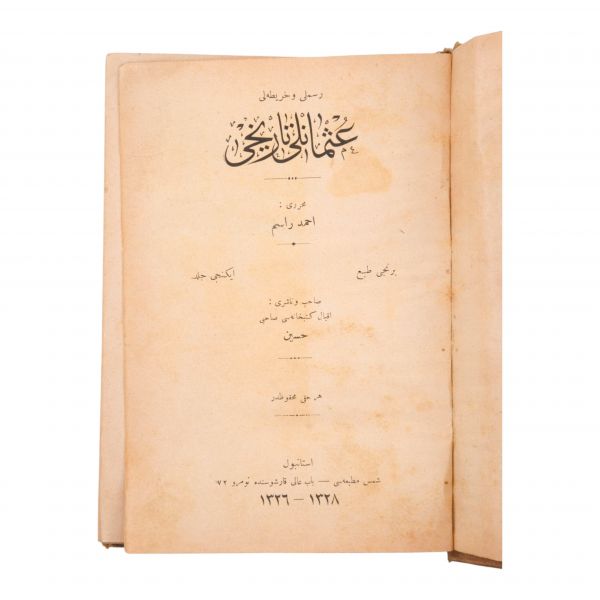 رسملی و خریطه‌لی
عثمانلی تاریخی
محرری :
احمد راسم
برنجی طبع ایکنجی جلد
صاحب و ناشری :
اقبال کتبخانه‌سی صاحبی
حسین
هر حقی محفوظدر
استانبول
شمس مطبعه‌سی — باب عالی قارشوسنده نومرو ٧٢
١٣٢٨ — ١٣٢٦